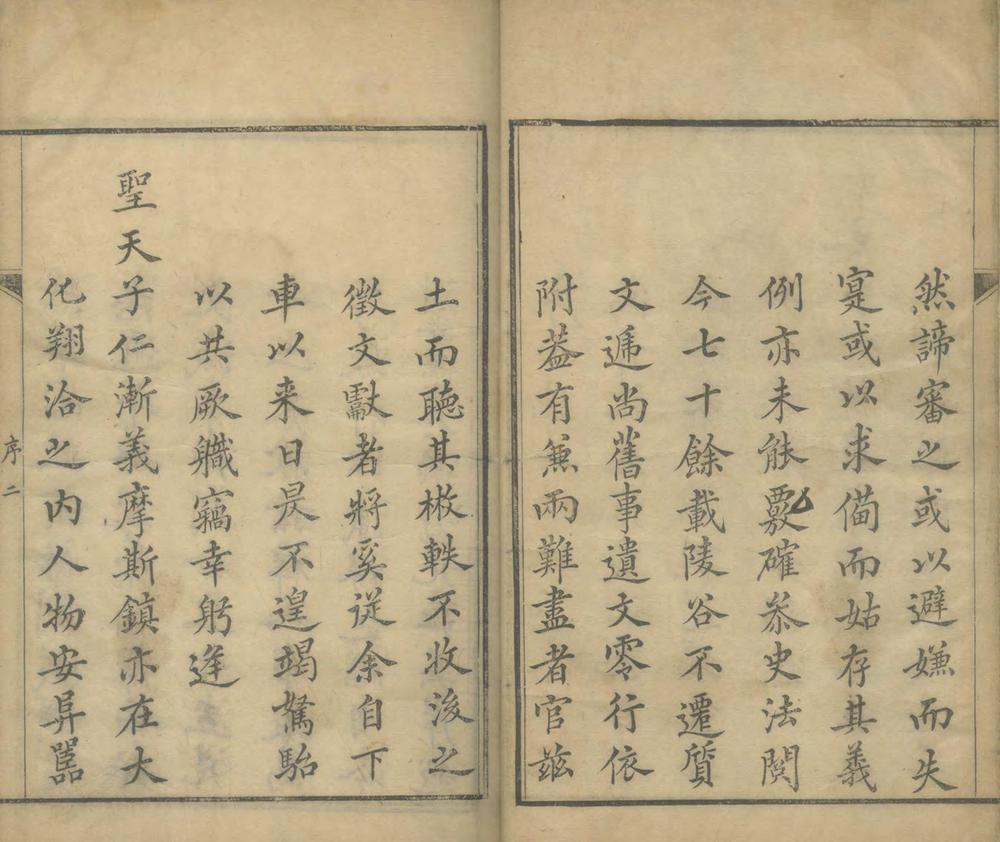 然諦審之或以避嫌而失
寔或以求備而姑存其義
例亦未能覈確叅史法閱
今七十餘載陵谷不遷質
文遞尚舊事遺文零行依
附葢有兼兩難盡者官兹
土而聽其楸軼不收後之
徵文獻者將奚從余自下
車以来日昃不遑竭駑駘
以共厥職竊幸躬逢
聖天子仁漸義摩斯鎮亦在大
化翔洽之内人物安昇嚚
序二